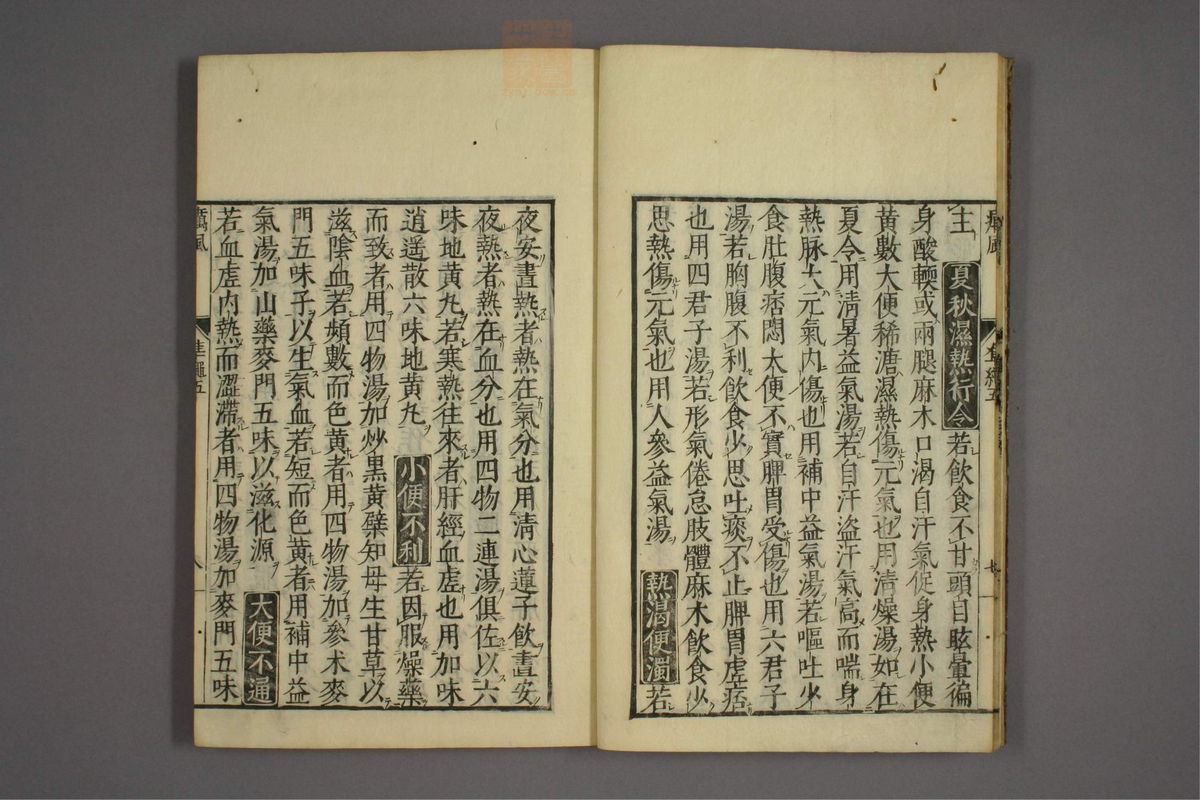 主 夏秋濕熱行令 若飲食不甘頭目眩暈徧
身酸輭或兩腿麻木口渴自汗氣促身熱小便
黃數大便稀溏濕熱傷元氣也用清燥湯如在
夏令用清暑益氣湯若自汗盜汗氣高而喘身
熱脉大元氣内傷也用補中益氣湯若嘔吐少
食肚腹痞悶大便不實脾胃受傷也用六君子
湯若胸腹不利飲食少思吐痰不止脾胃虛痞
也用四君子湯若形氣倦怠肢體麻木飲食少
思熱傷元氣也用人參益氣湯 熱渴便濁 若
夜安晝熱者熱在氣分也用清心蓮子飲晝安
夜熱者熱在血分也用四物二連湯俱佐以六
味地黄丸若寒熱往來者肝經血虛也用加味
逍遥散六味地黄丸 小便不利 若因服燥藥
而致者用四物湯加炒黒黄蘗知母生甘草以
滋陰血若頻數而色黄者用四物湯加參朮麥
門五味子以生氣血若短而色黄者用補中益
氣湯加山藥麥門五味以滋化源 大便不通
若血虛内熱而澀滯者用四物湯加麥門五味
癘風
五